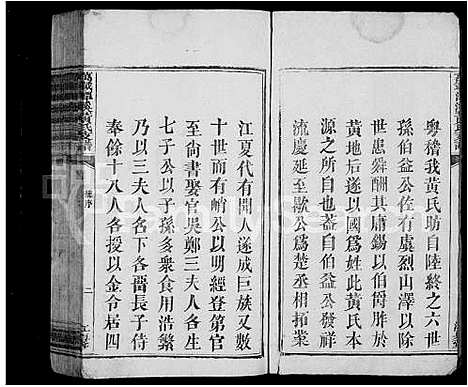 粤稽我黄氏助自陸終之六世
孫伯益公佐有虞烈山澤以除
世患舜酬其庸錫以伯爵胙於
黄地后遂以國為姓此黄氏本
源之所自也葢自伯益公發祥
流慶延至歇公為楚丞相拓業
江夏代有聞人遂成巨族又數
十世而有峭公以明經登第官
至尚書娶官吳鄭三夫人各生
七子公以子孫多衆食用浩繁
乃以三夫人名下各畱長子侍
奉餘十八人各授以金令居四
序
二